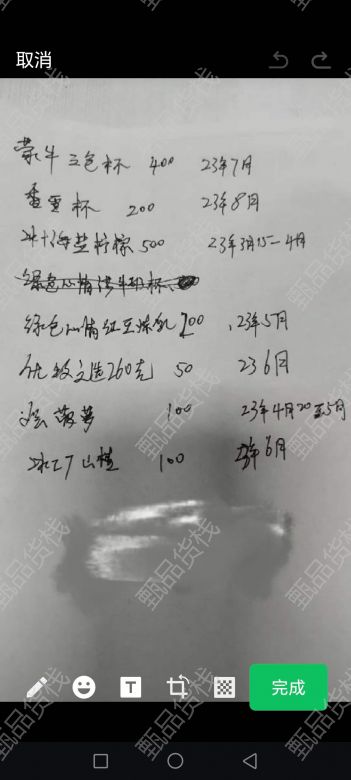 取消
蒙牛三色杯 400 23年7月
香蛋杯 200 23年8月
冰+海盐柠檬 500 23年3月15-4月
绿色心情红豆炼乳 200 23年5月
优牧之选260克 50 23 6月
菠萝 100 23年4月20至5月
冰工厂山楂 100 23年6月
T
完成
甄品货栈